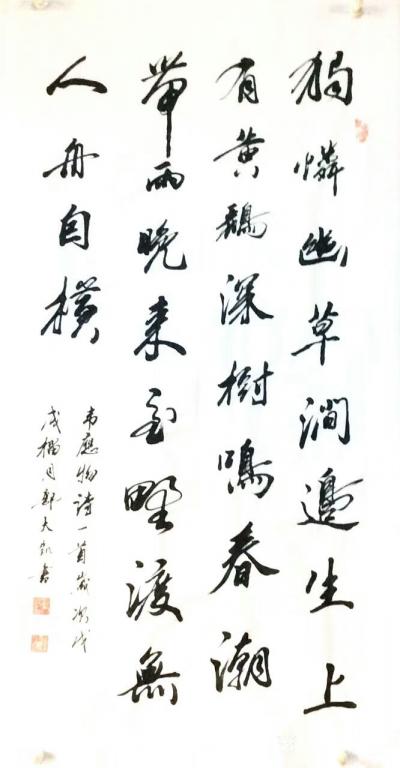 獨憐幽草澗邊生上
有黃鸝深樹鳴春潮
帶雨晚來急野渡無
人舟自橫
韦應物詩一首歲次戊
戌榴月鄭大書